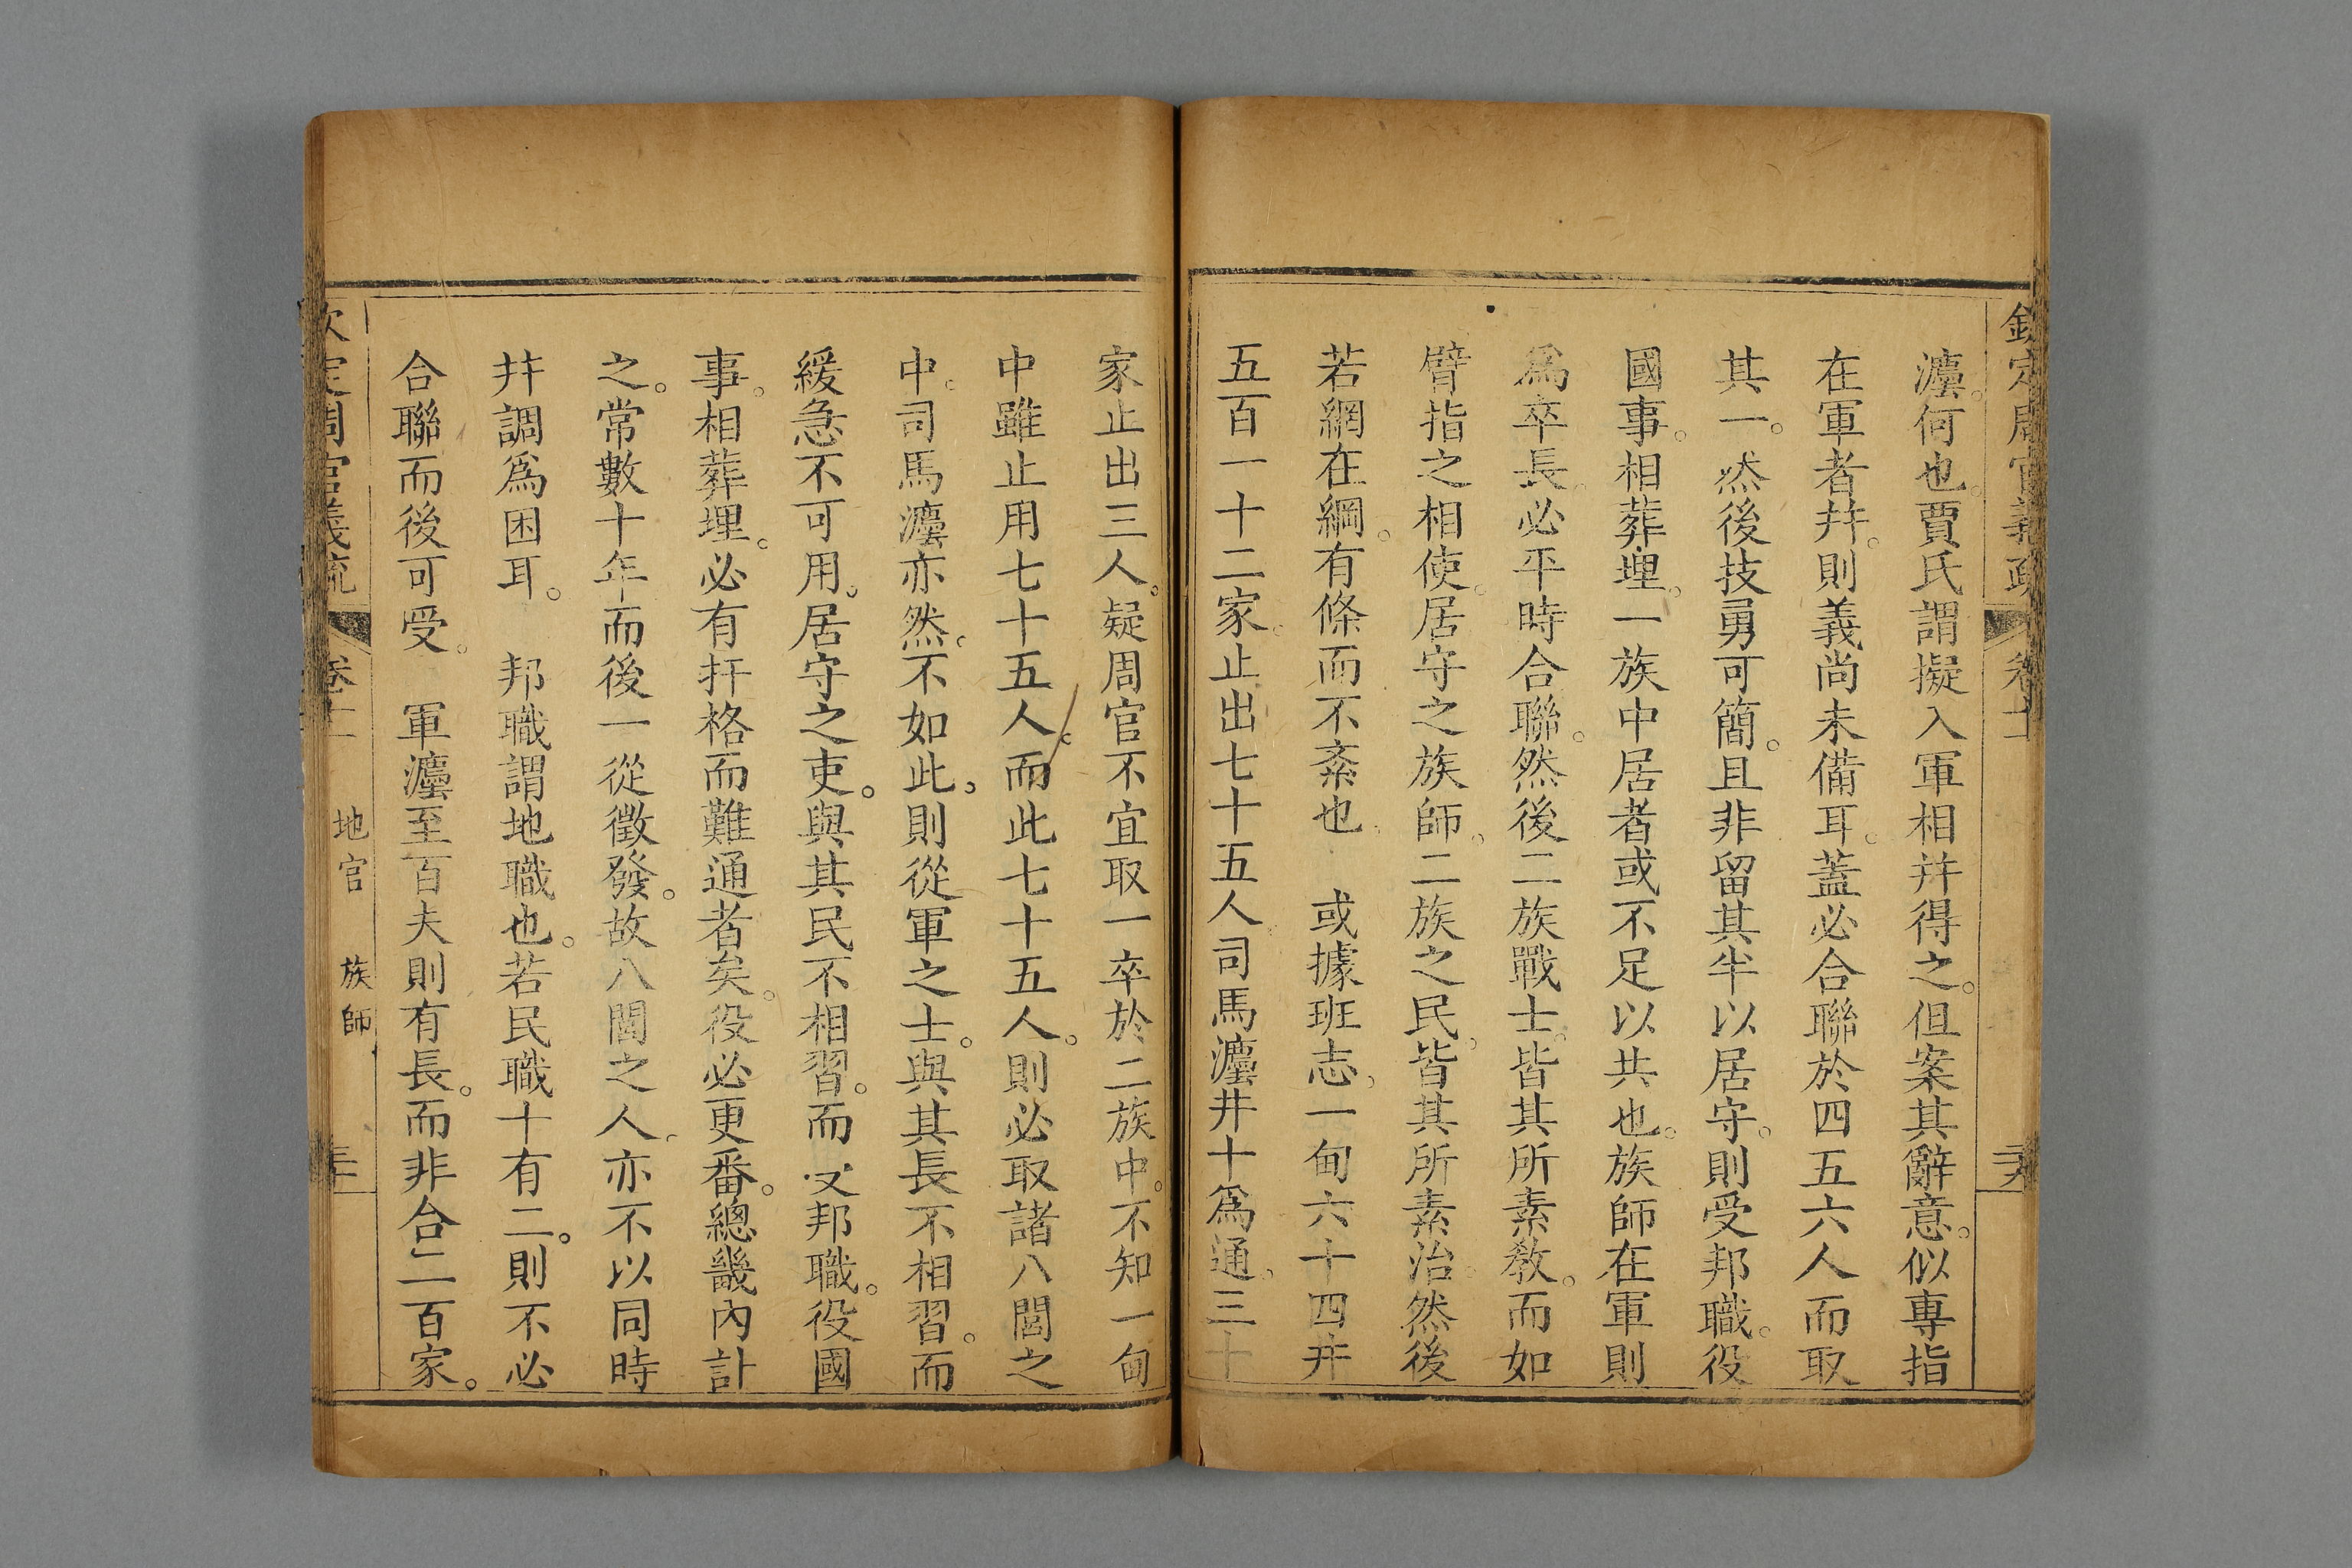 欽定周官義疏 卷十一 二九
灋。何也。賈氏謂擬入軍相幷得之。但案其辭意。似專指
在軍者幷。則義尚未備耳。蓋必合聯於四五六人而取
其一。然後技勇可簡。且非留其半以居守。則受邦職。役
國事。相葬埋。一族中居者或不足以共也。族師在軍則
爲卒長。必平時合聯。然後二族戰士。皆其所素教。而如
臂指之相使。居守之族師。二族之民。皆其所素治。然後
若網在綱。有條而不紊也 或據班志。一甸六十四井
五百一十二家。止出七十五人。司馬灋井十爲通。三十
家止出三人。疑周官不宜取一卒於二族中。不知一甸
中雖止用七十五人。而此七十五人。則必取諸八閭之
中。司馬灋亦然。不如此。則從軍之士。與其長不相習。而
緩急不可用。居守之吏。與其民不相習。而受邦職。役國
事。相葬埋。必有扞格而難通者矣。役必更番。總畿內計
之。常數十年而後一從徵發。故八閭之人。亦不以同時
幷調爲困耳。 邦職謂地職也。若民職十有二。則不必
合聯而後可受。 軍灋至百夫則有長。而非合二百家。
欽定周官義疏 卷十一 地官 族師 三十